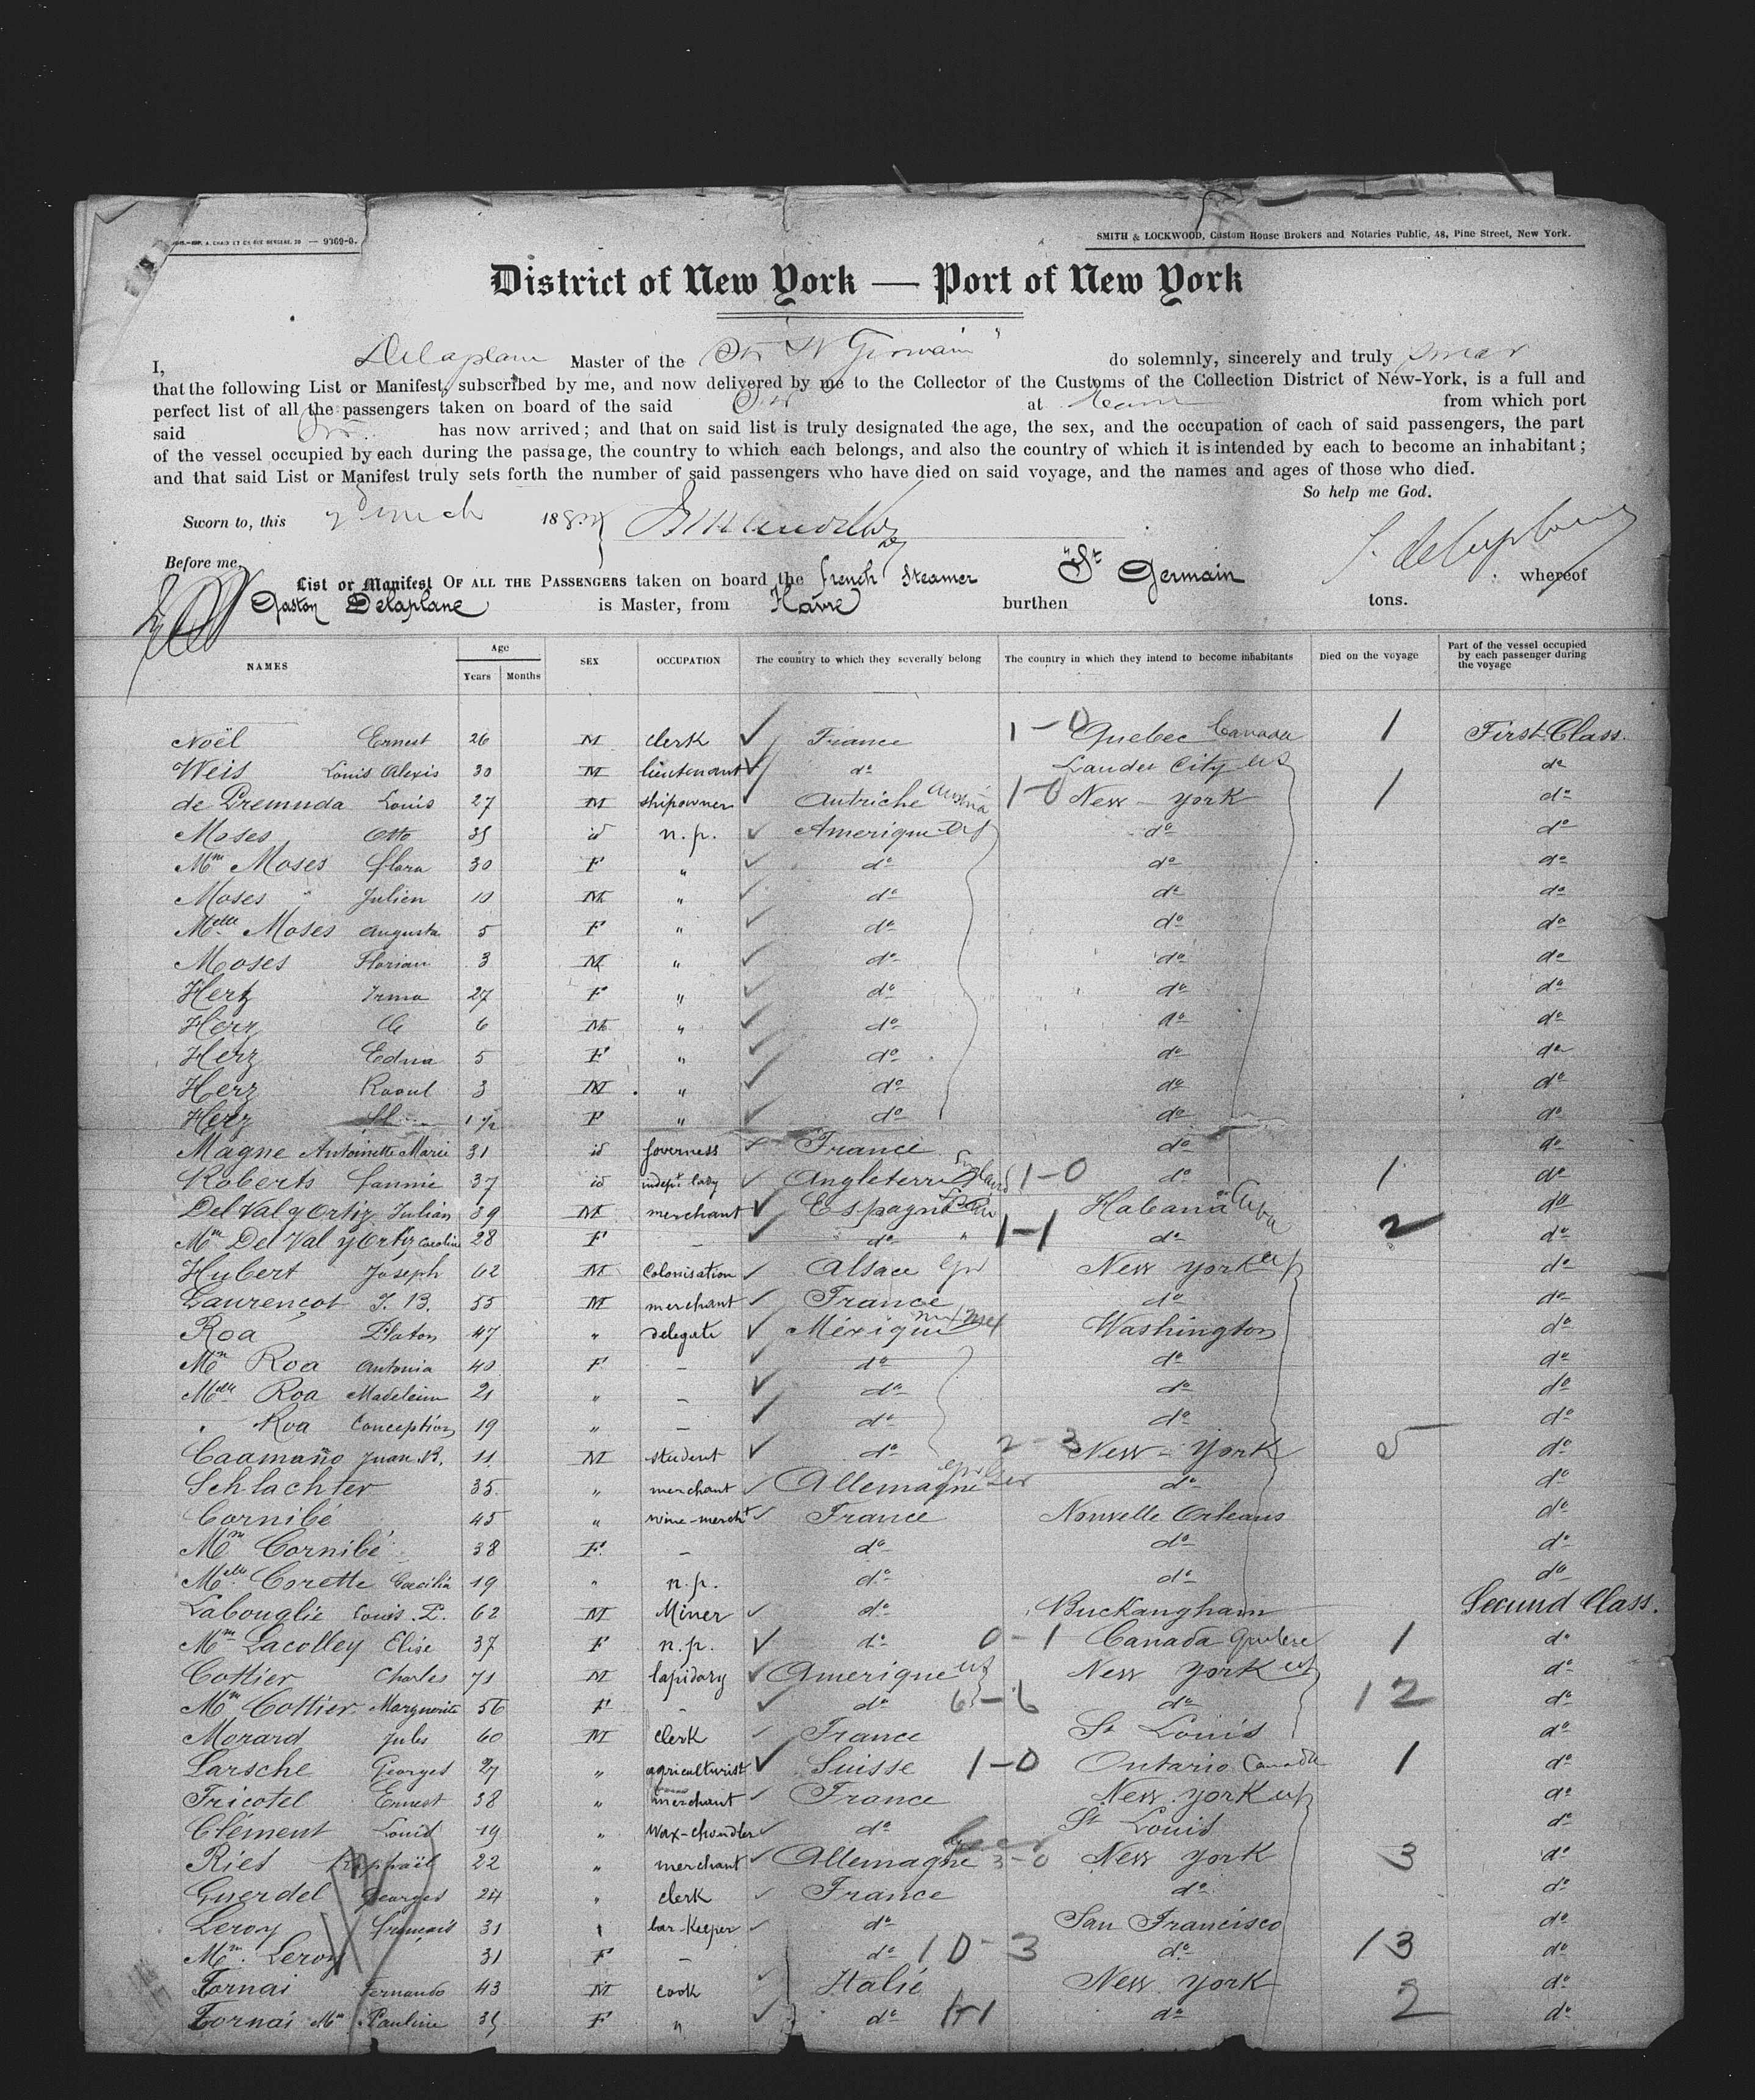 IMP. A. CHAIX ET Cie RUE BERGERE, 20 — 9369-0.
SMITH & LOCKWOOD, Custom House Brokers and Notaries Public, 48, Pine Street, New York.
District of New York — Port of New York
I, Delaplane Master of the Str "St Germain" do solemnly, sincerely and truly swear
that the following List or Manifest, subscribed by me, and now delivered by me to the Collector of the Customs of the Collection District of New-York, is a full and
perfect list of all the passengers taken on board of the said Str at Havre from which port
said Str has now arrived; and that on said list is truly designated the age, the sex, and the occupation of each of said passengers, the part
of the vessel occupied by each during the passage, the country to which each belongs, and also the country of which it is intended by each to become an inhabitant;
and that said List or Manifest truly sets forth the number of said passengers who have died on said voyage, and the names and ages of those who died.
So help me God.
Sworn to, this March 188
Before me,
List or Manifest OF ALL THE PASSENGERS taken on board the french Steamer "St Germain whereof
Gaston Delaplane is Master, from Havre burthen tons.
NAMES Age Years Months SEX OCCUPATION The country to which they severally belong The country in which they intend to become inhabitants Died on the voyage Part of the vessel occupied by each passenger during the voyage
Noël Ernest 26 M clerk France 1-0 Quebec Canada 1 First Class.
Weis Louis Alexis 30 M lieutenant do City US do
de Premuda Louis 27 M shipowner Autriche Austria 1-0 New-york 1 do
Moses Otto 35 id n.p. Amerique US do do
Mm Moses flora 30 F " do do do
Moses Julien 10 M " do do do
Melle Moses Augusta 5 F " do do do
Moses Florian 3 M " do do do
Hertz Irma 27 F " do do do
Herz 6 M " do do do
Herz Edna 5 F " do do do
Herz Raoul 3 M " do do do
Herz 1 1/2 F " do do do
Magne Antoinette Marie 31 id governess France do do
Roberts fannie 37 id indept lady Angleterre England 1-0 do 1 do
Del Val y Ortiz Julian 39 M merchant Espagne Spain Habana Cuba do
Mm Del Val y Ortiz Caroline 28 F - do 1-1 do 2 do
Hubert Joseph 62 M Colonisation Alsace Ger New york US do
Laurençot J. B. 55 M merchant France do do
Roa Platon 47 " delegate Méxique Mex Washington do
Mm Roa Antonia 40 F - do do do
Melle Roa Madeleine 21 " - do do do
" Roa Conception 19 " - do do do
Caamaño Juan R. 11 M student do 2-3 New-york 5 do
Schlachter 35 " merchant Allemagne Ger do do
Cornibé 45 " wine-mercht France Nouvelle Orleans do
Mm Cornibé 38 F - do do do
Melle Corette Caecilia 19 " n.p. do do do
Labouglie Louis. P. 62 M Miner do Buckangham Second Class.
Mm Lacolley Elise 37 F n.p. do 0-1 Canada Quebec 1 do
Cottier Charles 71 M lapidary Amerique US New york US do
Mm Cottier Marguerite 56 F - do 6-6 do 12 do
Morard Jules 60 M clerk France St Louis do
Larsche Georges 27 " agriculturist Suisse 1-0 Ontario Canada 1 do
Tricotel Ernest 38 " merchant France New york US do
Clément Louis 19 " wax-chandler do St Louis do
Ries Raphaël 22 " merchant Allemagne Ger 3-0 New york 3 do
Guerdel Georges 24 " clerk France do do
Leroy français 31 " bar-keeper do San Francisco do
Mm Leroy 31 F - do 10-3 do 13 do
Tornai Fernando 43 M cook Italie New york do
Tornai Mm Pauline 35 F " do 1-1 do 2 do